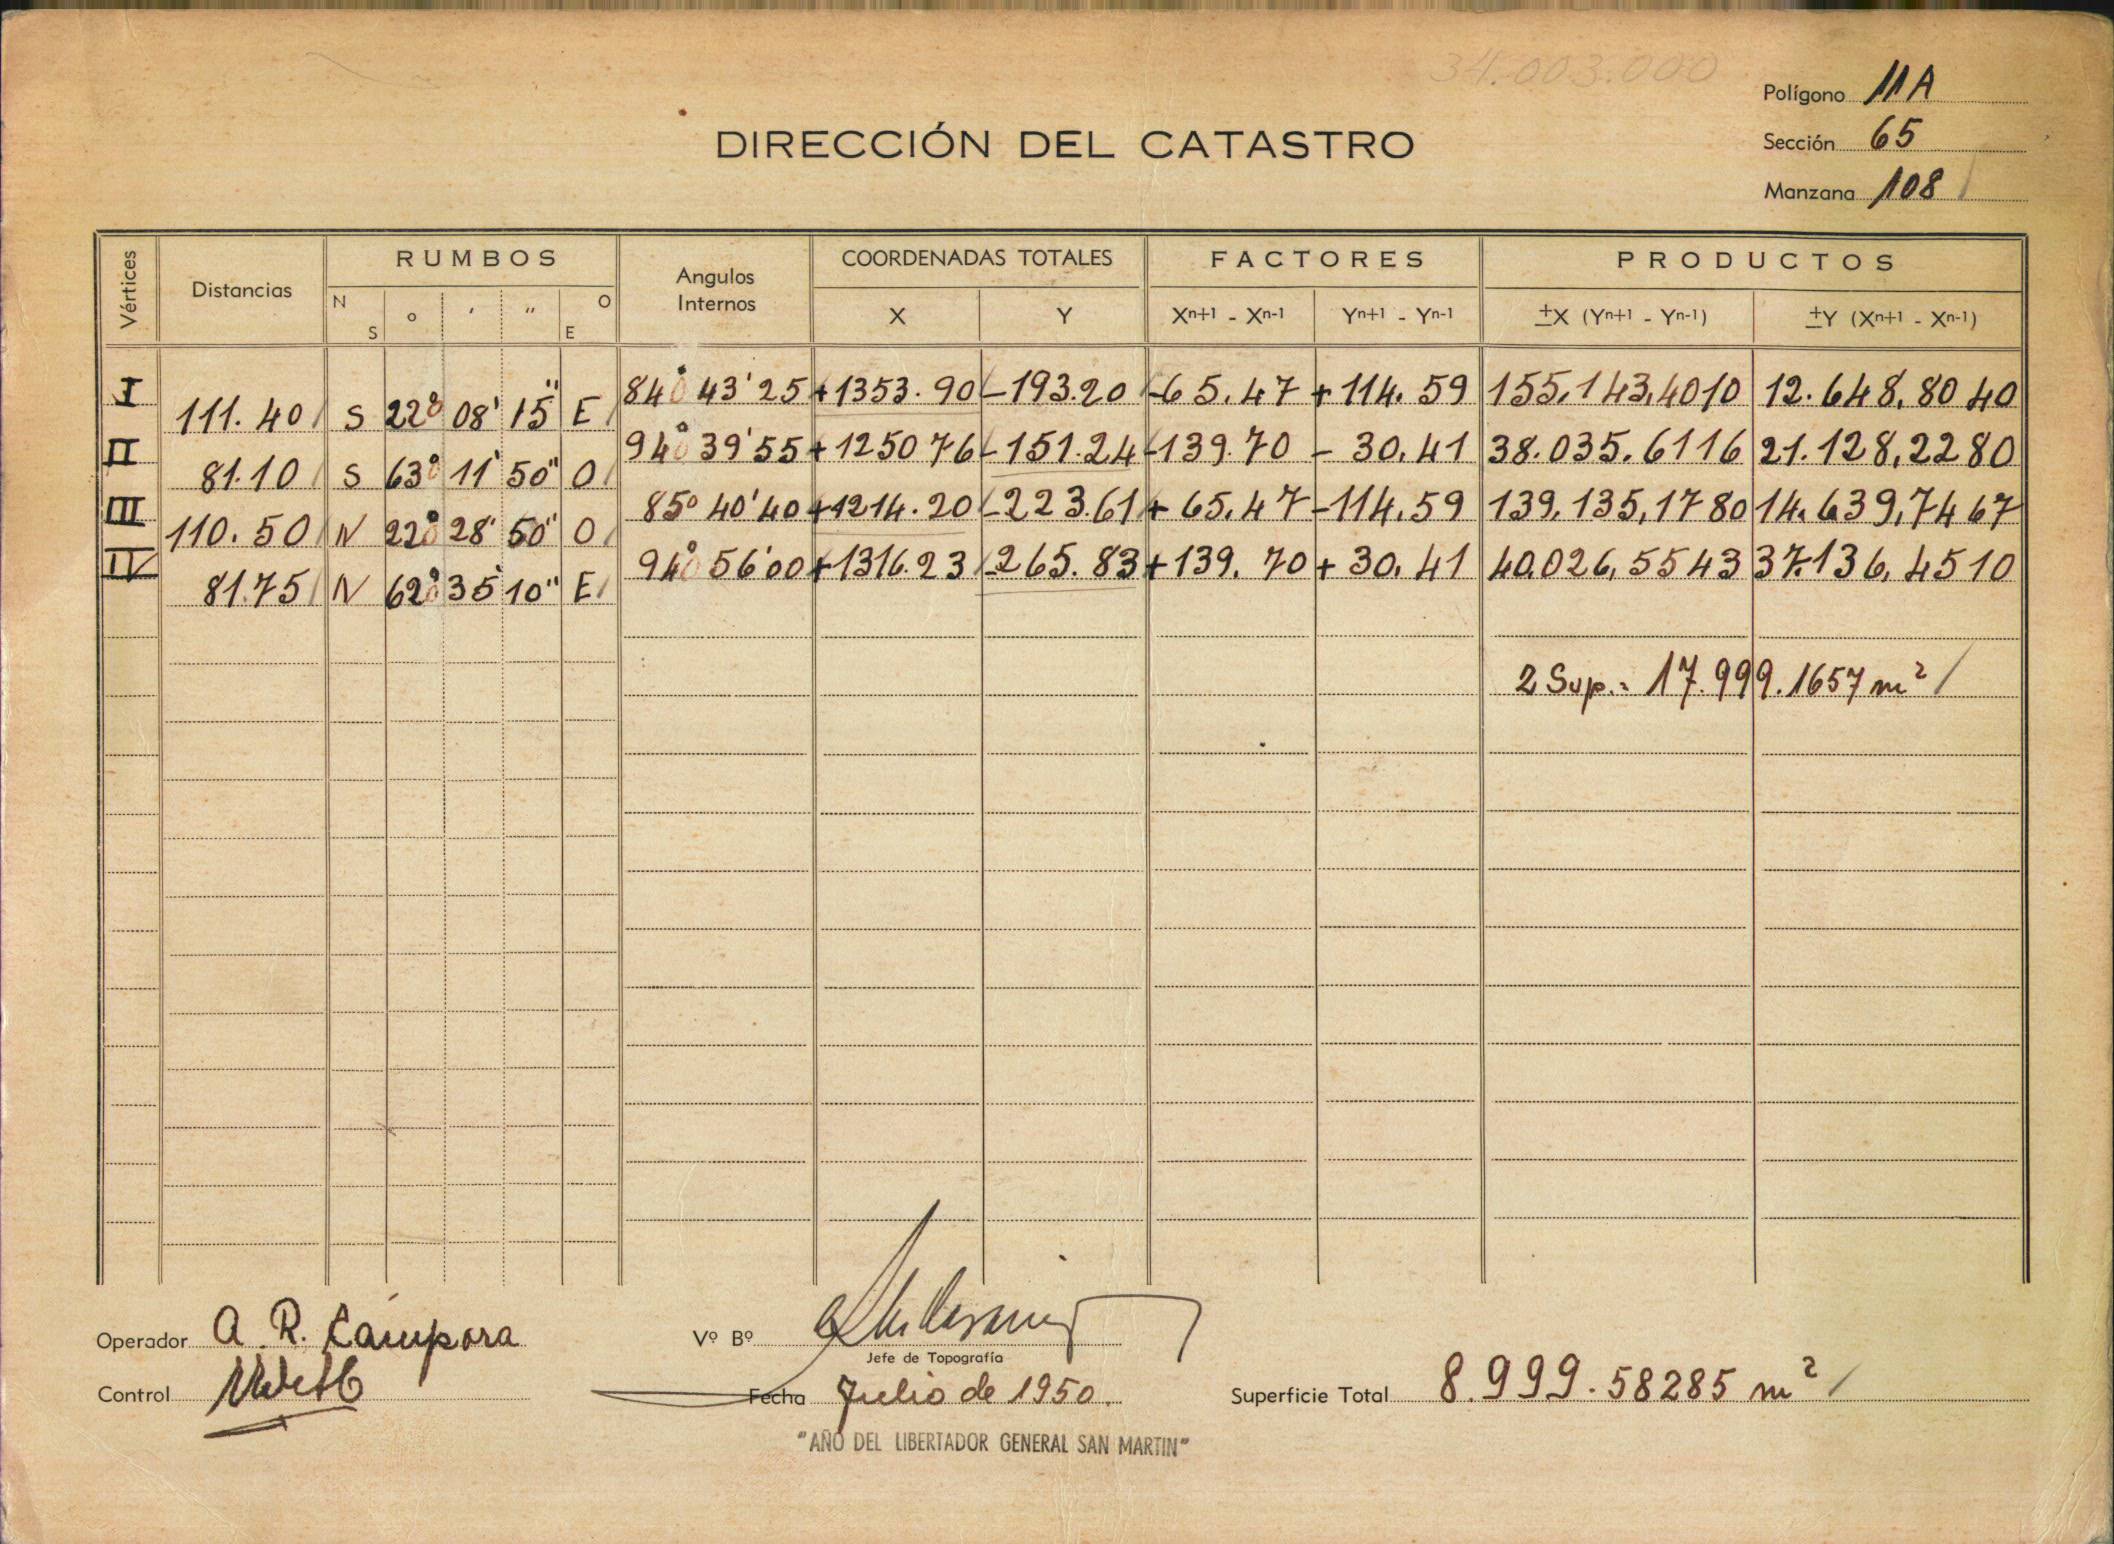 34.003.000
Polígono 11A
DIRECCIÓN DEL CATASTRO
Sección 65
Manzana 108
Vértices Distancias RUMBOS Angulos Internos COORDENADAS TOTALES FACTORES PRODUCTOS
N S ° ' " O E X Y Xn+1 - Xn-1 Yn+1 - Yn-1 ±X (Yn+1 - Yn-1) ±Y (Xn+1 - Xn-1)
I 84° 43' 25 +1353.90 -193.20 -65.47 +114.59 155,143,4010 12.648,8040
111.40 S 22° 08' 15" E
II 94° 39' 55 +1250 76 -151.24 -139.70 - 30,41 38.035.6116 21.128,2280
81.10 S 63° 11' 50" O
III 85° 40' 40 +1214.20 -223.61 +65.47 -114.59 139,135,1780 14.639,7467
110.50 N 22° 28' 50" O
IV 94° 56' 00 +1316.23 -265.83 +139.70 +30,41 40.026,5543 37.136,4510
81.75 N 62° 35' 10" E
2 Sup.= 17.999.1657 m²
Operador A. R. Cámpora
Vº Bº
Jefe de Topografía
Control
Fecha Julio de 1950.
Superficie Total 8.999.58285 m²
"AÑO DEL LIBERTADOR GENERAL SAN MARTIN"